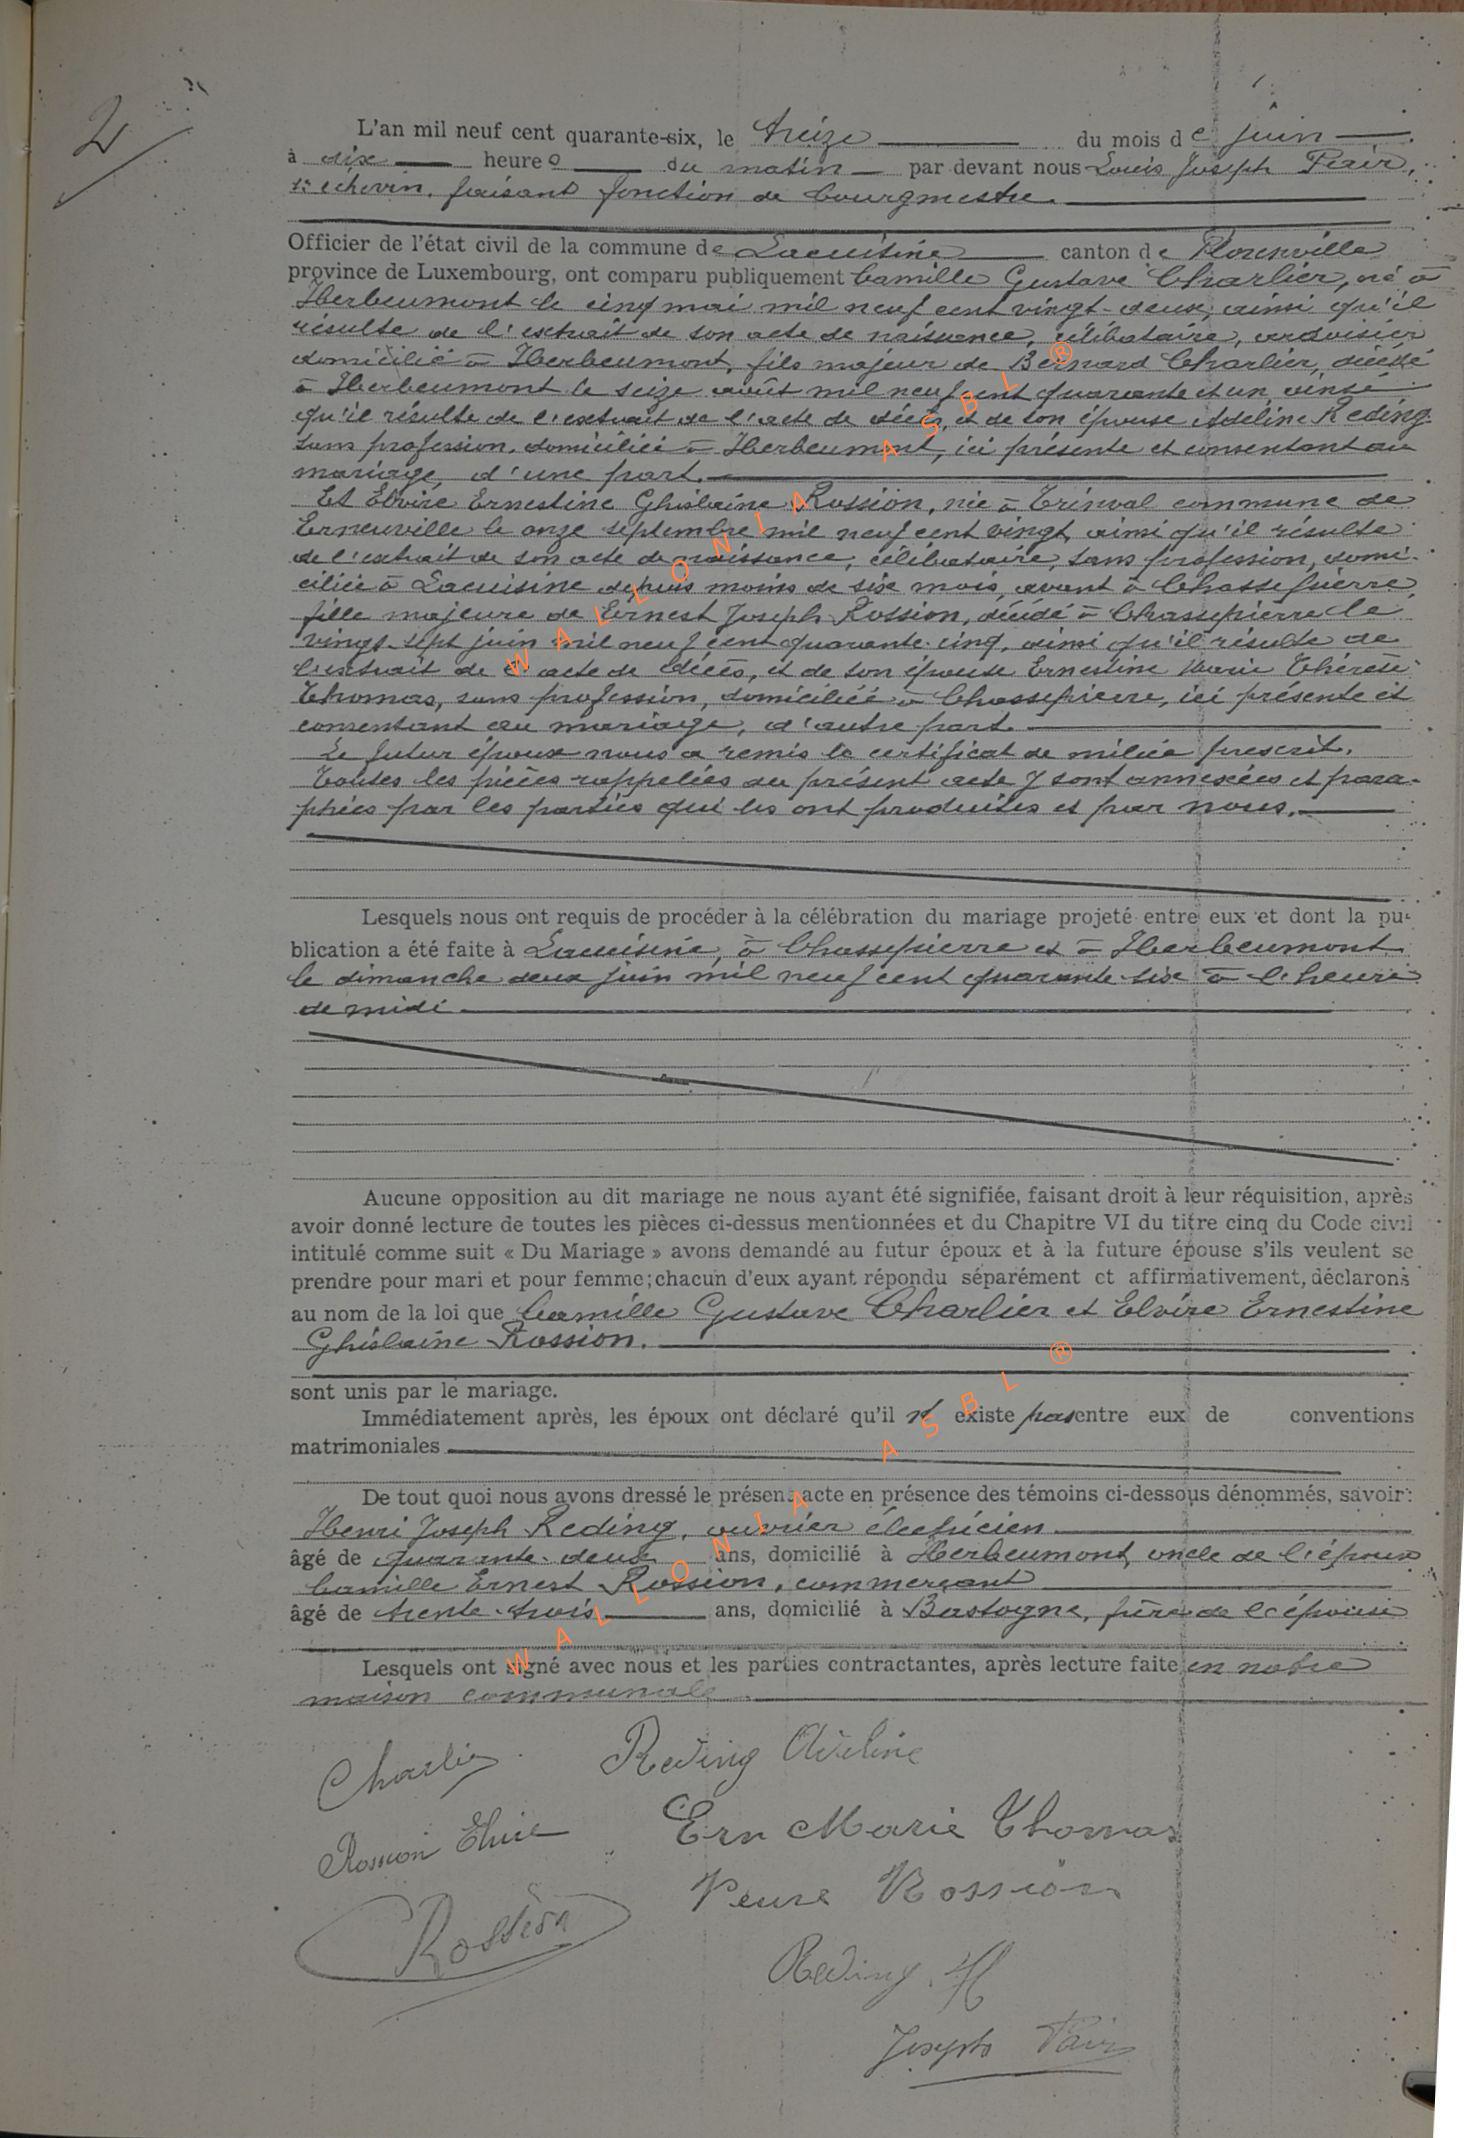 2
L'an mil neuf cent quarante-six, le treize du mois de juin
à dix heures du matin par devant nous Louis Joseph
1er échevin, faisant fonction de bourgmestre.
Officier de l'état civil de la commune de Lacuisine canton de Florenville
province de Luxembourg, ont comparu publiquement Camille Gustave Charlier, né à
Herbeumont le cinq mai mil neuf cent vingt-deux, ainsi qu'il
résulte de l'extrait de son acte de naissance, célibataire, ardoisier
domicilié à Herbeumont, fils majeur de Bernard Charlier, décédé
à Herbeumont le seize août mil neuf cent quarante et un, ainsi
qu'il résulte de l'extrait de l'acte de décès, et de son épouse Adeline Reding
sans profession, domiciliée à Herbeumont, ici présente et consentant au
mariage, d'une part.
Et Elvire Ernestine Ghislaine Rossion, née à commune de
Erneuville le onze septembre mil neuf cent vingt, ainsi qu'il résulte
de l'extrait de son acte de naissance, célibataire, sans profession, domi-
ciliée à Lacuisine depuis moins de six mois, avant à Chassepierre
fille majeure de Ernest Joseph Rossion, décédé à Chassepierre le
vingt-sept juin mil neuf cent quarante-cinq, ainsi qu'il résulte de
l'extrait de l'acte de décès, et de son épouse Ernestine Marie Thérèse
Thomas, sans profession, domiciliée à Chassepierre, ici présente et
consentant au mariage, d'autre part.
Le futur époux nous a remis le certificat de milice prescrit.
Toutes les pièces rappelées au présent acte y sont annexées et para-
phées par les parties qui les ont produites et par nous.
Lesquels nous ont requis de procéder à la célébration du mariage projeté entre eux et dont la pu-
blication a été faite à Lacuisine, à Chassepierre et à Herbeumont
le dimanche deux juin mil neuf cent quarante-six à l'heure
de midi
Aucune opposition au dit mariage ne nous ayant été signifiée, faisant droit à leur réquisition, après
avoir donné lecture de toutes les pièces ci-dessus mentionnées et du Chapitre VI du titre cinq du Code civil
intitulé comme suit « Du Mariage » avons demandé au futur époux et à la future épouse s'ils veulent se
prendre pour mari et pour femme; chacun d'eux ayant répondu séparément et affirmativement, déclarons
au nom de la loi que Camille Gustave Charlier et Elvire Ernestine
Ghislaine Rossion.
sont unis par le mariage.
Immédiatement après, les époux ont déclaré qu'il n' existe pas entre eux de conventions
matrimoniales
De tout quoi nous avons dressé le présent acte en présence des témoins ci-dessous dénommés, savoir:
Henri Joseph Reding, ouvrier électricien
âgé de quarante-deux ans, domicilié à Herbeumont, oncle de l'époux
Camille Ernest Rossion, commerçant
âgé de trente-trois ans, domicilié à Bastogne, frère de l'épouse
Lesquels ont signé avec nous et les parties contractantes, après lecture faite en notre
maison communale.
Charlier Reding Adeline
Rossion Elvire Ern Marie Thomas
Veuve Rossion
Rossion
Reding H
Joseph
WALLONIA ASBL ®
WALLONIA ASBL ®